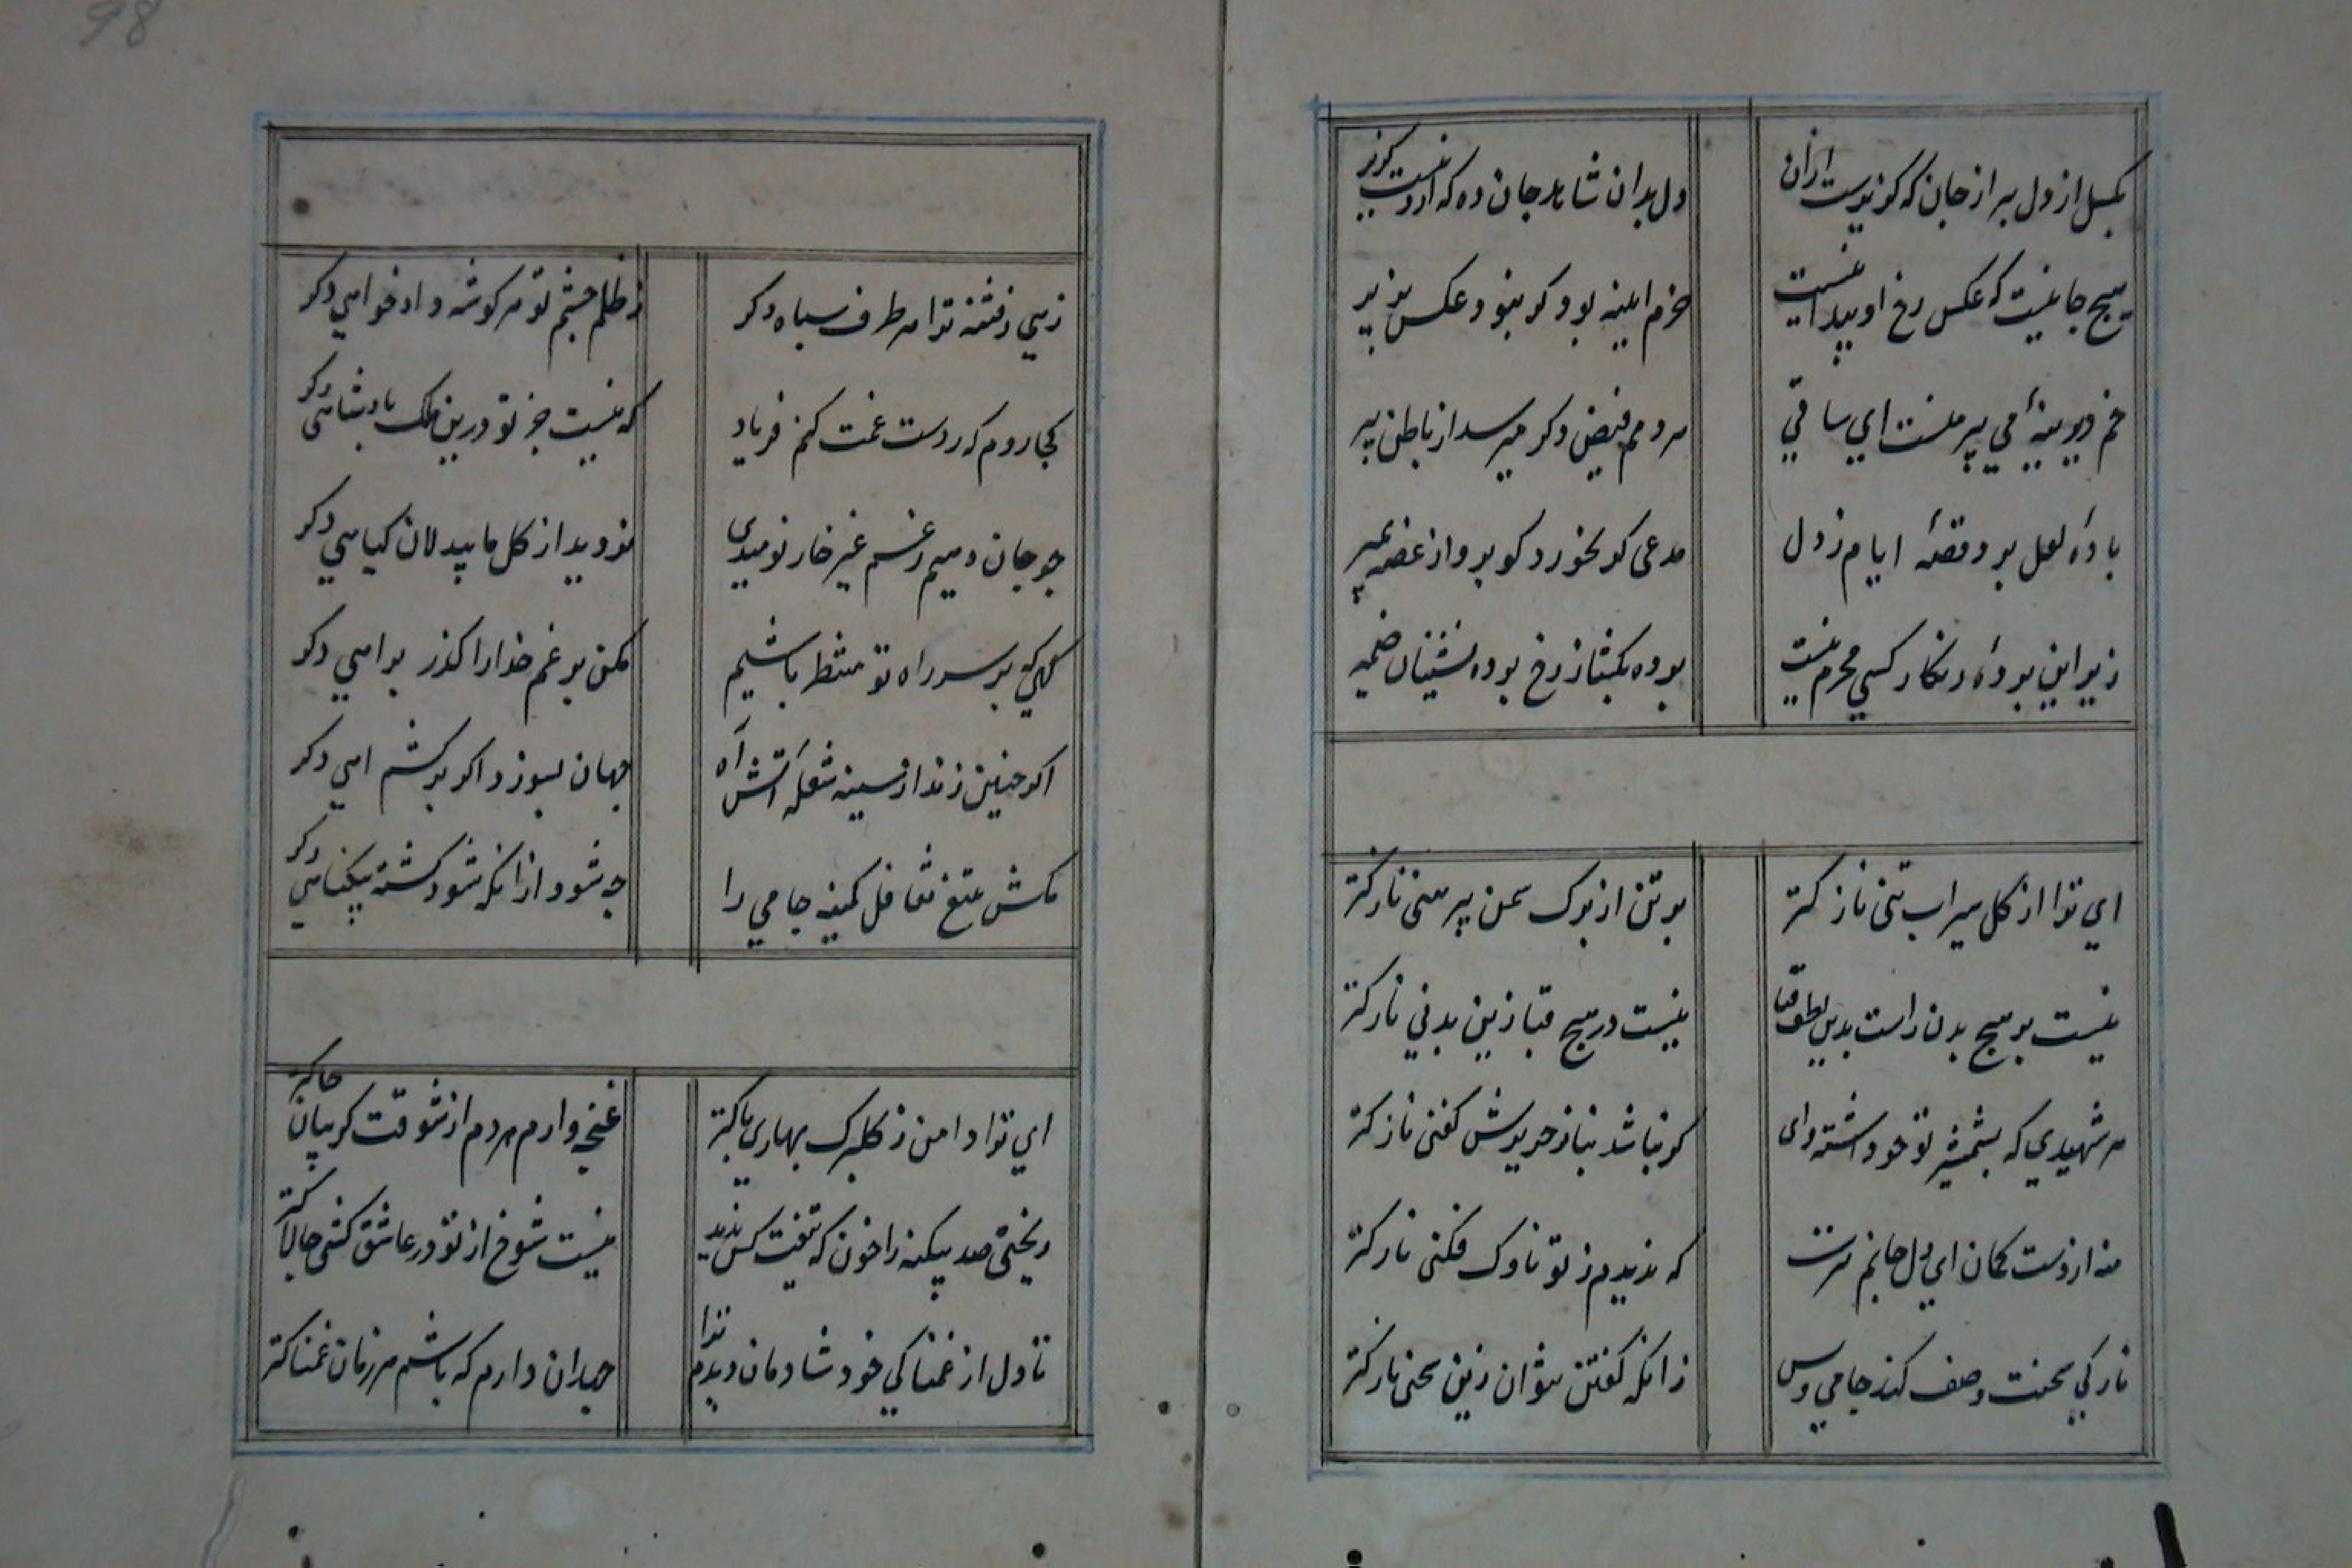 98
بکسل از دل ببر از جان که کزیرست ازان
دل بدان شاهد جان ده که ازو نیست کزیر
هیچ جا نیست که عکس رخ او پیدا نیست
خرم ایینه بود کر بنود عکس پذیر
خم دیرینهٔ می پیر منست ای ساقی
هر دمم فیض دکر میرسد از باطن پیر
بادهٔ لعل برد قصهٔ ایام ز دل
مدعی کو بخورد کو برو از غصه بمیر
زیر این پردهٔ زنکار کسی محرم نیست
پرده بکشا ز رخ پرده نشینان ضمیر
ای ترا از کل سیراب تنی نازکتر
بر تن از برک سمن پیرهنی نازکتر
نیست بر هیچ بدن راست بدین لطف قبا
نیست در هیچ قبا زین بدنی نازکتر
هر شهیدی که بشمشیر تو خو داشته وای
کر نباشد نیاز حریرش کفنی نازکتر
منه از دست کمان ای دل جانم هدفت
که ندیدم ز تو ناوک فکنی نازکتر
نازکی سخنت وصف کند جامی و بس
زانکه کفتن نتوان زین سخنی نازکتر
زهی ز فتنه ترا هر طرف سپاه دکر
ز ظلم چشم تو هر کوشه دادخواهی دکر
کجا روم که ز دست غمت کنم فریاد
که نیست جز تو درین ملک پادشاهی دکر
چو جان دهیم ز غم غیر خار نومیدی
نروید از کل ما بیدلان کیاهی دکر
بهر کجا بر سر راه تو منتظر باشیم
مکن بر غم خدا را کذر براهی دکر
اکر چنین زند از سینه شعله آتش آه
جهان بسوزد اکر برکشم اهی دکر
مکش بتیغ تغافل کمینه جامی را
چه شود از انکه شود کشته بیکناهی دکر
ای ترا دامن ز کلبرک بهاری پاکتر
غنچه وارم هر دم از شوقت کریبان چاکتر
ریختی صد بیکنه را خون که تیغت کس ندید
نیست شوخ از تو در عاشق کشی چالاکتر
تا دل از غمناکی خود شادمان دیدم ترا
جهد ان دارم که باشم هر زمان غمناکتر